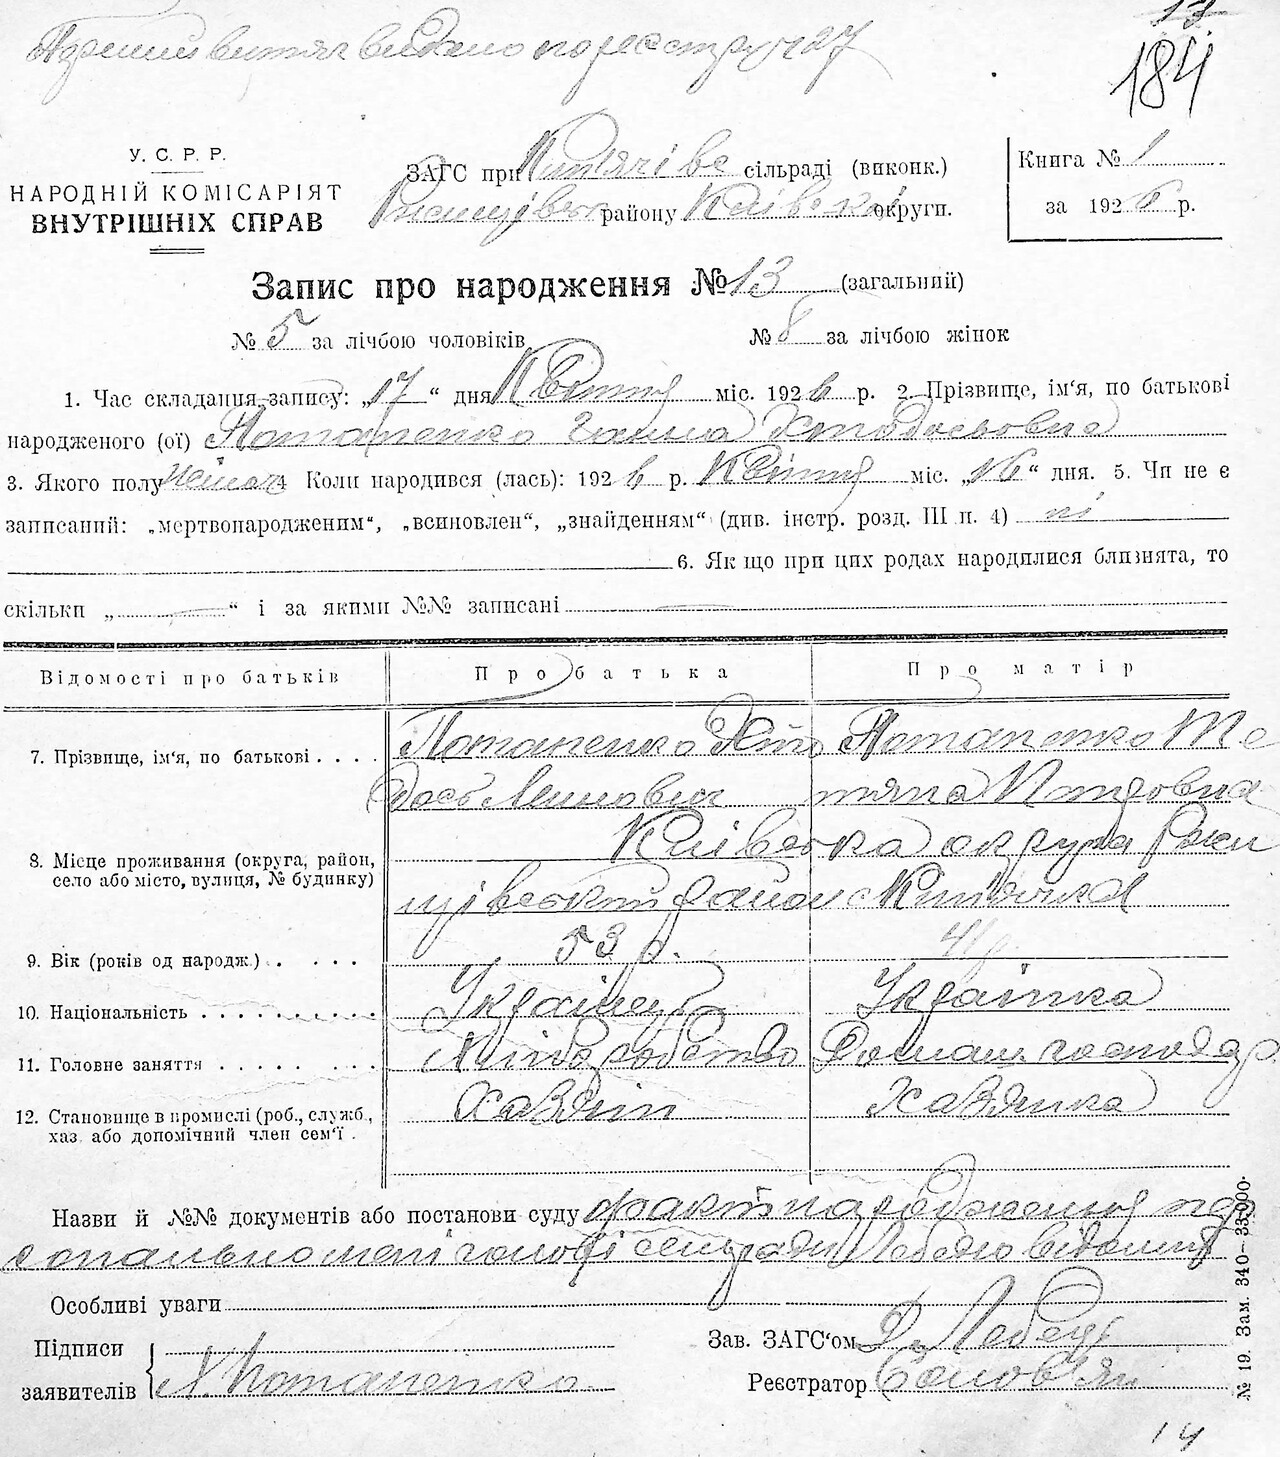 Первий витяг видано по реєстру ч 27
13
184
У. С. Р. Р.
НАРОДНІЙ КОМІСАРІЯТ
ВНУТРІШНІХ СПРАВ
ЗАГС при сільраді (виконк.)
району Київської округи.
Книга № 1
за 1926 р.
Запис про народження № 13 (загальний)
№ 5 за лічбою чоловіків № 8 за лічбою жінок
1. Час складання запису: „17“ дня Квітня міс. 1926 р. 2. Прізвище, ім‘я, по батькові
народженого (ої) Потапенко Ганна Хтодосьовна
3. Якого полу жіноч 4 Коли народився (лась): 1926 р. Квітня міс. „16“ дня. 5. Чи не є
записаний: „мертвонародженим“, „всиновлен“, „знайденням“ (див. інстр. розд. III п. 4) ні
6. Як що при цих родах народилися близнята, то
скільки „ “ і за якими №№ записані
Відомості про батьків Про батька Про матір
7. Прізвище, ім‘я, по батькові . . . . Потапенко Хто Потапенко Те
дось Минович тяна Петровна
8. Місце проживання (округа, район, село або місто, вулиця, № будинку) Київська округа Ржи
щівський район с
9. Вік (років од народж.) . . . . . 53 р. 41 р.
10. Національність . . . . . . . . . . Українець Українка
11. Головне заняття . . . . . . . . Хліборобство Домаш господар
12. Становище в промислі (роб., служб., хаз. або допомічний член сем‘ї . Хазяїн Хазяйка
Назви й №№ документів або постанови суду факт народження пер
сонально мені голові сельради Лебедю відомий
Особливі уваги
Підписи
заявителів Х. Потапенко
Зав. ЗАГС‘ом Д. Лебедь
Реєстратор Солов'ян
№ 19. Зам. 340—33.000.
14